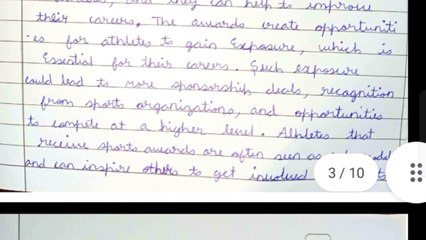 and they can help to improve
their careers. The awards create opportuniti
-es for athletes to gain Exposure, which is
Essential for their careers. Such exposure
could lead to more sponsorship deals, recognition
from sports organizations, and opportunities
to compete at a higher level. Athletes that
receive sports awards are often seen as
and can inspire others to get involved
3 / 10